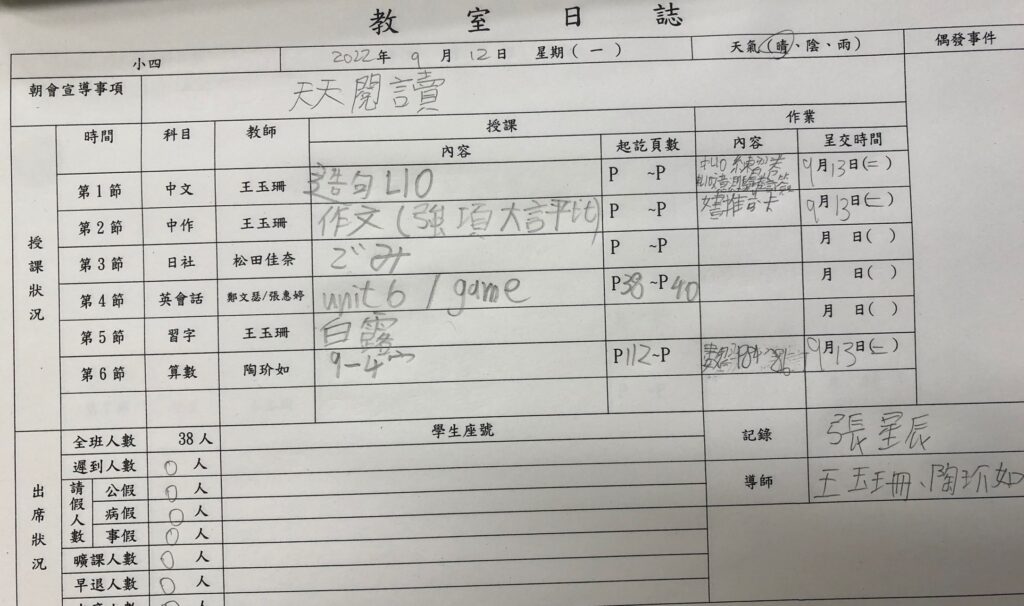 教室日誌
小四 2022年 9月 12日 星期(一) 天氣(晴、陰、雨) 偶發事件
朝會宣導事項 天天閱讀
授課狀況 時間 科目 教師 授課 作業
內容 起訖頁數 內容 呈交時間
第1節 中文 王玉珊 造句L10 P ~P 9月13日(二)
第2節 中作 王玉珊 作文(強項大評比) P ~P 9月13日(二)
第3節 日社 松田佳奈 ごみ P ~P 月 日( )
第4節 英會話 鄭文瑟/張惠婷 unit 6 / game P38 ~P40 月 日( )
第5節 習字 王玉珊 白露 月 日( )
第6節 算數 陶玠如 9-4 P112~P 9月13日(二)
出席狀況 全班人數 38人 學生座號 記錄 張星辰
遲到人數 0人
請假人數 公假 0人 導師 王玉珊、陶玠如
病假 0人
事假 0人
曠課人數 0人
早退人數 0人